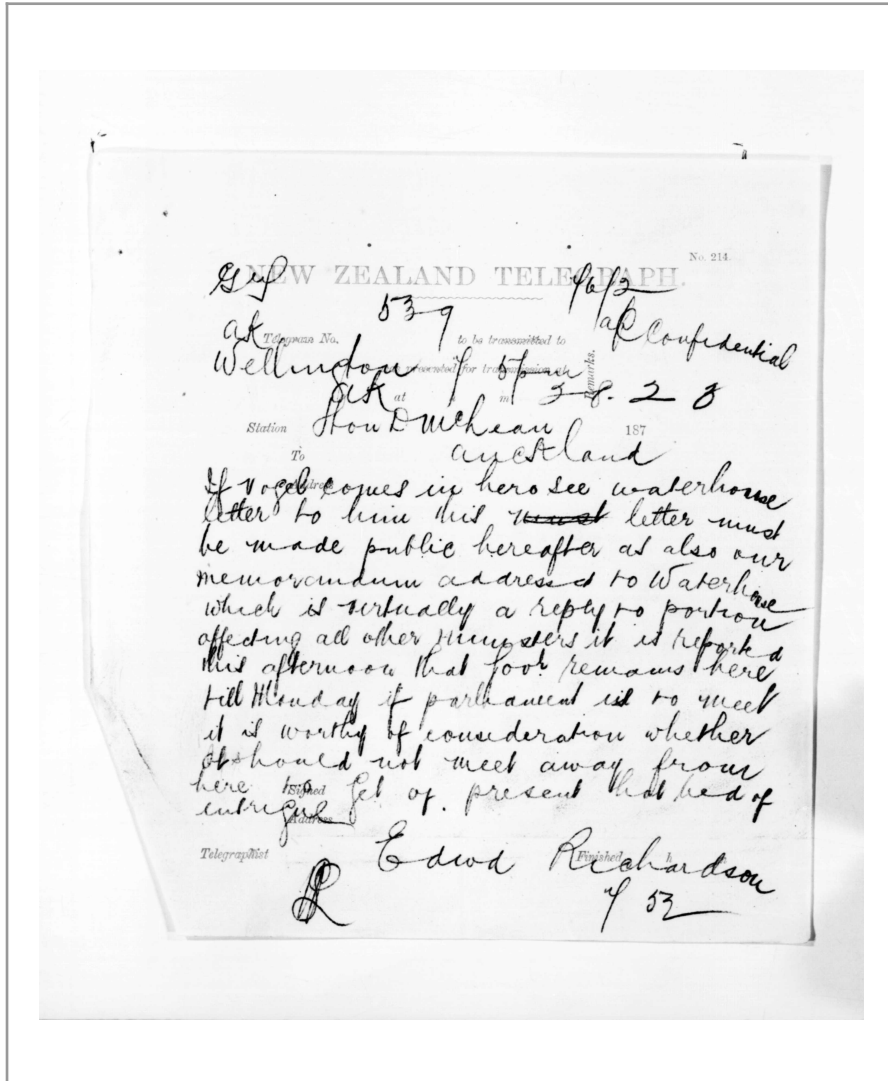 No. 214.
NEW ZEALAND TELEGRAPH.
539
Confidential
ak Telegram No. to be transmitted to
Remarks.
Wellington presented for transmission
ak at
Station Hon D McLean 187
To Auckland
If Vogel comes in hero see waterhouse
letter to him his must letter must
be made public hereafter as also our
memorandum addressed to Waterhouse
which is virtually a reply to portion
affecting all other ministers it is reported
this afternoon that govr. remains here
till Monday if parliament is to meet
it is worthy of consideration whether
it should not meet away from
here to get of. present hot bed of
Signed
intrigue
Address
Telegraphist Finished h
Edwd Richardson